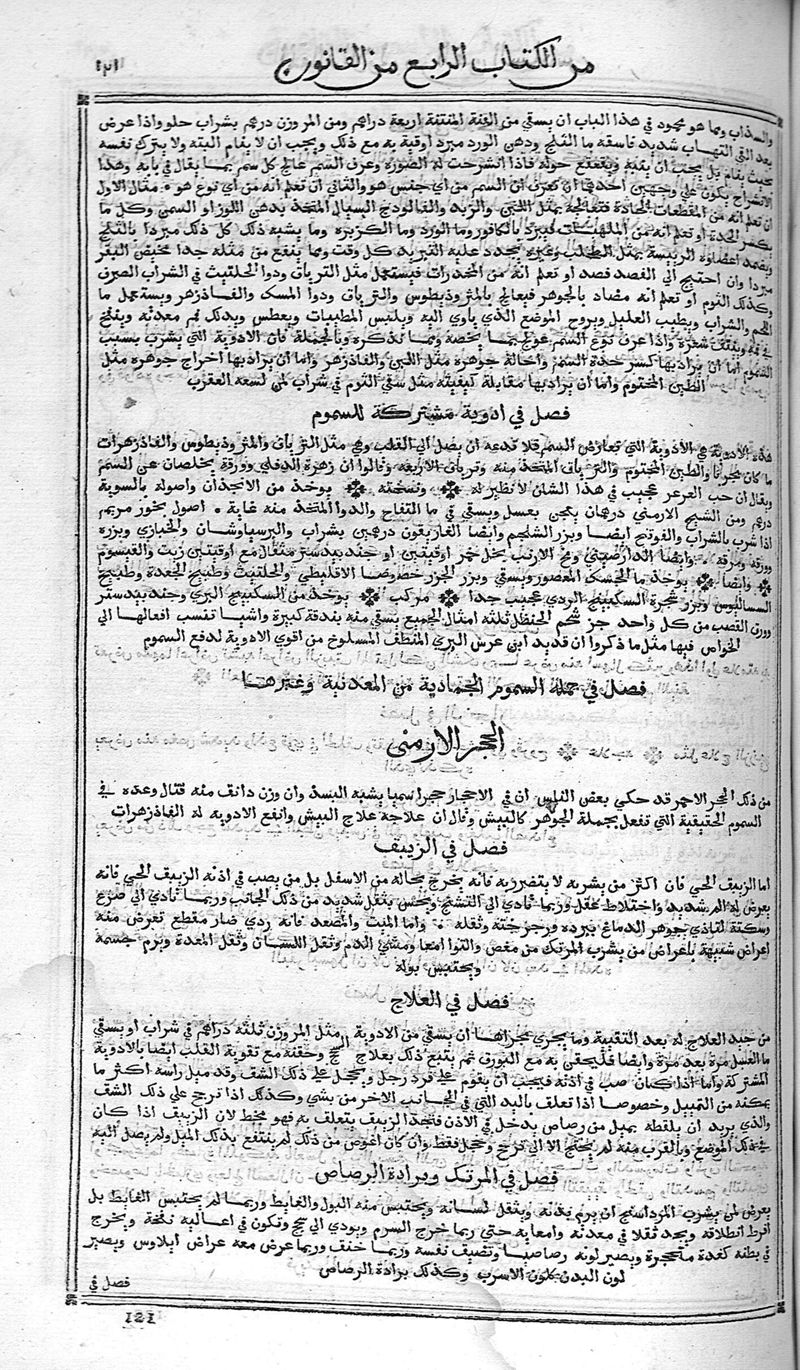 من الكتاب الرابع من القانون
١٢١
والسذاب ومما هو محمود في هذا الباب ان يسقي من القنة المنتنة اربعة دراهم ومن المر وزن درهم بشراب حلو واذا عرض
بعد القي التهاب شديد فاسقه ما الثلج ودهن الورد مبرد اوقية به مع ذلك ويجب ان لا ينام البته ولا يترك نفسه
بحيث ينام بل يجب ان ينبه ويقعقع حوله فاذا انشرحت له الصورة وعرف السم عالج كل سم بما يقال في بابه وهذا
الانشراح يكون علي وجهين احدهما ان تعرف ان السم من اي جنس هو والثاني ان تعلم انه من اي نوع هو مثال الاول
ان تعلم انه من المقطعات الحادة فتعالجه بمثل اللبن والزبد والفالوذج السيال المتخذ بدهن اللوز او السمن وكل ما
يكسر الحدة او تعلم انه من الملهبات فيبرد بالكافور وما الورد وما الكزبره وما يشبه ذلك كل ذلك مبردا بالثلج
ويضمد اعضاوه الرييسة بمثل الطحلب وغيره يجدد عليه التبريد كل وقت ومما ينفع من مثله جدا مخيض البقر
مبردا وان احتيج الي الفصد فصد او تعلم انه من المخدرات فيستعمل مثل الترياق ودوا الحلتيت في الشراب الصرف
وكذلك الثوم او تعلم انه مضاد بالجوهر فيعالج بالمثروذيطوس والترياق ودوا المسك والفاذزهر ويستعمل ما
اللحم والشراب ويطيب العليل ويروح الموضع الذي ياوي اليه ويلبس المطيبات ويعطس ويدلك فم معدته وينفخ
في فيه وينتف شعره واذا عرف نوع السم عولج بما يخصه ومما نذكره وبالجملة فان الادوية التي يشرب بسبب
السموم اما ان يراد بها كسر حدة السم واحالة جوهره مثل اللبن والفاذزهر واما ان يراد بها اخراج جوهره مثل
الطين المختوم واما ان يراد بها مقابلة كيفيته مثل سقي الثوم في شراب لمن لسعه العقرب
فصل في ادوية مشتركة للسموم
هذه الادوية هي الأدوية التي تعارض السم فلا تدعه ان يصل الي القلب وهي مثل الترياق والمثروذيطوس والفاذزهرات
ما كان مجربا والطين المختوم والترياق المتخذ منه وترياق الاربعة وقالوا ان زهرة الدفلي وورقة يخلصان عن السم
ويقال ان حب العرعر عجيب في هذا الشان لا نظير له ونسخته يوخذ من الانجذان واصوله بالسوية
درهم ومن الشيح الارمني درهمان يعجن بعسل ويسقي في ما التفاح والدوا المتخذ منه غاية اصول بخور مريم
اذا شرب بالشراب والفوتنج ايضا وبزر الشلجم وايضا الغاريقون درهمين بشراب والبرسياوشان والخبازي وبزره
وورقه ومرقه وايضا الدارصيني ومخ الارنب بخل خمر اوقيتين او جندبيدستر مثقال مع اوقيتين زيت والقيسوم
وايضا يوخذ ما الحسك المعصور ويسقي وبزر الجزر خصوصا الاقليطي والحلتيت وطبيخ الجعدة وطبيخ
السساليوس وبزر شجرة السكبينج الردي عجيب جدا مركب يوخذ من السكبينج البري وجندبيدستر
وورق القصب من كل واحد جز شحم الحنظل ثلثه امثال الجميع يسقي منه بندقة كبيرة واشيا تفسب افعالها الي
الخواص فيها مثل ما ذكروا ان قديد ابن عرس البري المنظف المسلوخ من اقوي الادوية لدفع السموم
فصل في جملة السموم الجمادية من المعدنية وغيرها
الحجر الارمني
من ذلك الحجر الاحمر قد حكي بعض الناس ان في الاحجار حجرا سميا يشبه البسد وان وزن دانق منه قتال وعده في
السموم الحقيقية التي تفعل بجملة الجوهر كالبيش وقال ان علاجه علاج البيش وانفع الادويه له الفاذزهرات
فصل في الزيبف
اما الزيبف الحي فان اكثر من يشربه لا يتضرر به فانه يخرج بحاله من الاسفل بل من يصب في اذنه الزيبف الحي فانه
يعرض له الم شديد واختلاط عقل وربما تادي الي التشنج ويحس بثقل شديد من ذلك الجانب وربما تادي الي صرع
وسكتة لتاذي جوهر الدماغ ببرده ورجرجته وثقله واما الميت والمصعد فانه ردي ضار مقطع تعرض منه
اعراض شبيهة باعراض من يشرب المرتك من مغص والتوا امعا ومشي الدم وثقل اللسان وثقل المعدة ويرم جسمه
ويحتبس بوله
فصل في العلاج
من جيد العلاج له بعد التقيية وما يجري مجراها ان يسقي من الادوية مثل المر وزن ثلثه دراهم في شراب او يسقي
ما العسل مرة بعد مرة وايضا فليحقن به مع البورق ثم يتبع ذلك بعلاج السحج وحقنه مع تقوية القلب ايضا بالادوية
المشتركة واما اذا كان صب في اذنه فيجب ان يقوم علي فرد رجل ويحجل علي ذلك الشف وقد ميل راسه اكثر ما
يمكنه من التمييل وخصوصا اذا تعلق باليد التي في الجانب الاخر من بشي وكذلك اذا ترجح علي ذلك الشف
والذي يريد ان يلقطه بميل من رصاص يدخل في الاذن فتجد الزيبف يتعلق به فهو مخطي لان الزيبف اذا كان
في ذلك الموضع وبالقرب منه لم يحتج الا الي ترجح وحجل فقط وان كان اغوص من ذلك لم ينتفع بذلك الميل ولم يصل اليه
فصل في المرتك وبرادة الرصاص
يعرض لمن يشرب المرداسنج ان يرم بدنه ويثقل لسانه ويحتبس منه البول والغايط وربما لم يحتبس الغايط بل
افرط انطلاقه ويجد ثقلا في معدته وامعايه حتي ربما خرج السرم ويودي الي سحج وتكون في اعاليه نفخة ويخرج
في بطنه كغدة متحجرة ويصير لونه رصاصيا وتضيق نفسه وربما خنف وربما عرض معه عراض ايلاوس ويصير
لون البدن كلون الاسرب وكذلك برادة الرصاص
فصل في
121